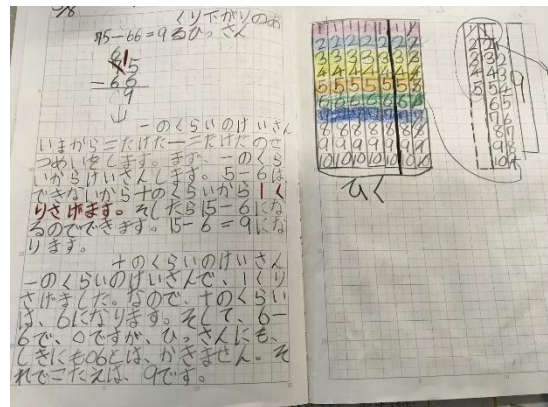 6/8
くり下がりのあ
75-66=9るひっさん
6 1
7 5
-6 6
9
↓
一のくらいのけいさん
いまから二たけた一二たけたのせ
つめいをします。まず、一のくら
いからけいさんします。5-6は
できないから十のくらいから1く
りさげます。そしたら15-6にな
るのでできます。15-6=9にな
ります。
十のくらいのけいさん
一のくらいのけいさんで、1くり
さげました。なので、十のくらい
は、6になります。そして、6-
6で、0ですが、ひっさんにも、
しきにも06とは、かきません。そ
れでこたえは、9です。
2 2 2 2 2 2 2 2
3 3 3 3 3 3 3 3
4 4 4 4 4 4 4 4
5 5 5 5 5 5 5 5
6 6 6 6 6 6 6 6
7 7 7 7 7 7 7 7
8 8 8 8 8 8 8 8
9 9 9 9 9 9 9 9
10 10 10 10 10 10 10 10
ひく
9